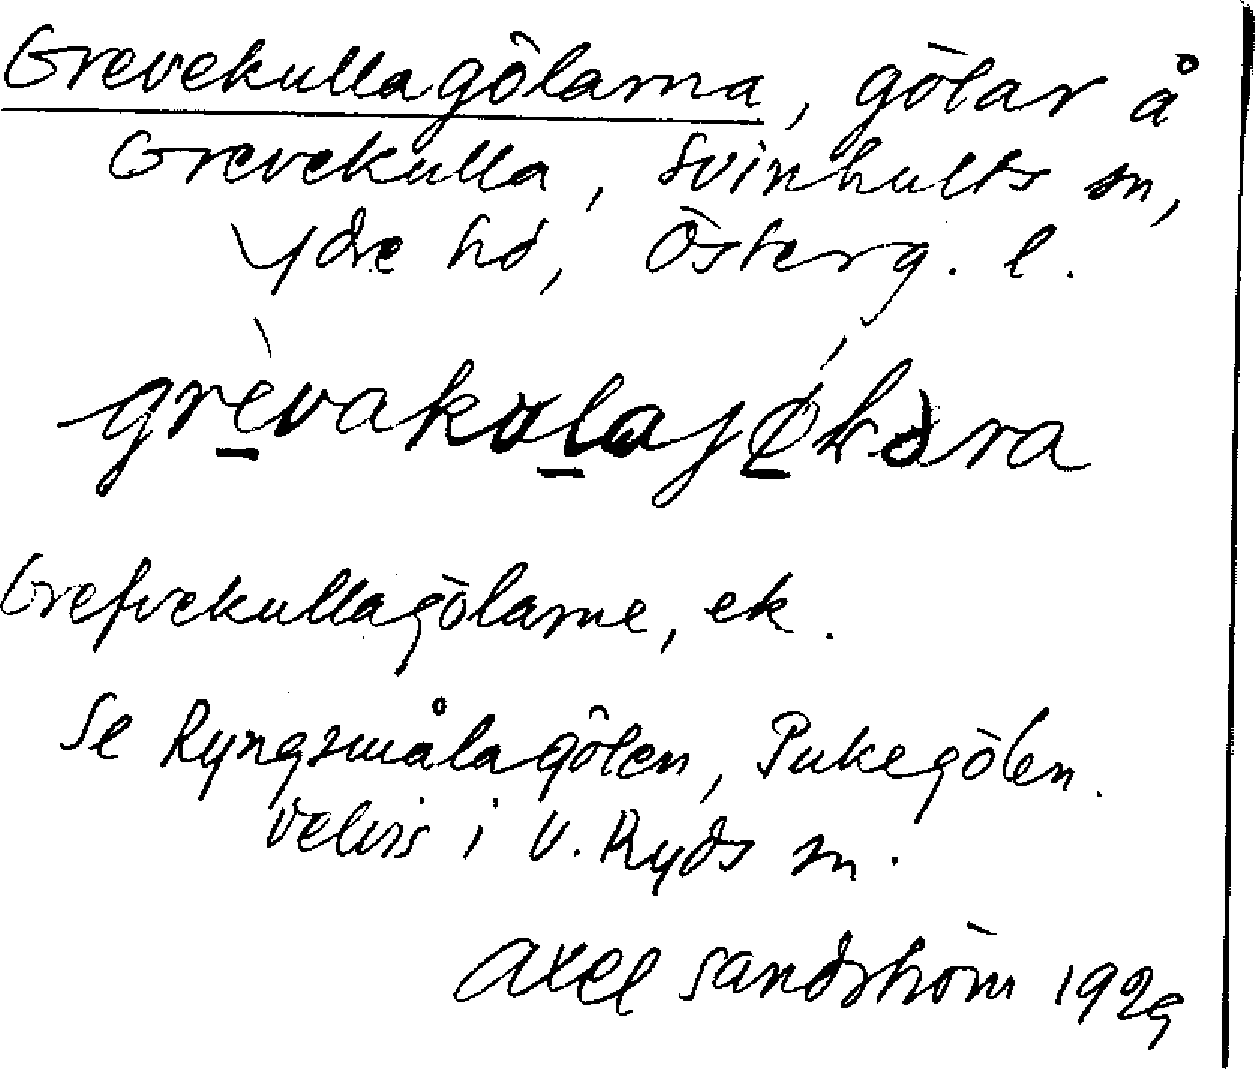 Grevekullagölarna, gölar å
Grevekulla, Svinhults sn,
Ydre hd, Österg. l.
grèvakulajøhara
Grefvekullagölarne, ek.
Se Ryngsmålagölen, Pukegölen.
delvis i V. Ryds sn.
Axel Sandström 1929